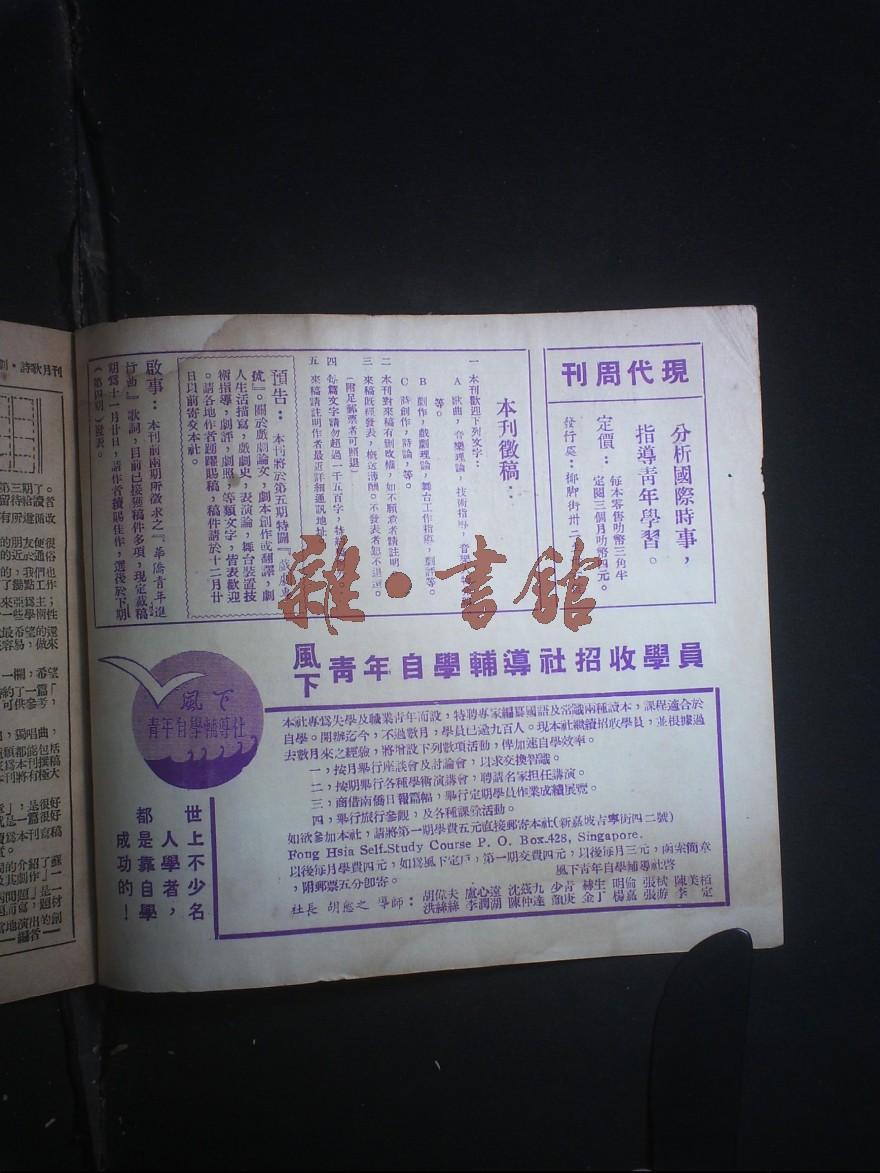 現代周刊
分析國際時事，
指導青年學習。
定價：
每本零售叻幣三角半
定閱三個月叻幣四元。
發行處：
本刊徵稿：
一 本刊歡迎下列文字：
A 歌曲，音樂理論，技術指導，音樂
等。
B 劇作，戲劇理論，舞台工作指導，劇評等。
C 詩創作，詩論，等。
二 本刊對來稿有刪改權，如不願意者請註明
三 來稿既經發表，概送薄酬。不發表者恕不退還。
（附足郵票者可照退）
四 每篇文字請勿超過一千五百字，特
五 來稿請註明作者最近詳細通訊地址
預告：
本刊將於第五期特闢『戲劇專
號』。關於戲劇論文，劇本創作或翻譯，劇
人生活描寫，戲劇史，表演論，舞台裝置技
術指導，劇評，劇照，等類文字，皆表歡迎
。請各地作者踴躍賜稿，稿件請於十二月廿
日以前寄交本社。
啟事：
本刊前兩期所徵求之『華僑青年進
行曲』歌詞，目前已接獲稿件多項，現定截稿
期爲十一月廿日，請作者續賜佳作，選後於下期
（第四期）發表。
風下
青年自學輔導社招收學員
風下
青年自學輔導社
世上不少名
人學者，
都是靠自學
成功的！
本社專爲失學及職業青年而設，特聘專家編纂國語及常識兩種讀本，課程適合於
自學。開辦迄今，不過數月，學員已逾九百人。現本社繼續招收學員，並根據過
去數月來之經驗，將增設下列數項活動，俾加速自學效率。
一，按月舉行座談會及討論會，以求交換智識。
二，按期舉行各種學術演講會，聘請名家担任講演。
三，商借南僑日報篇幅，舉行定期學員作業成績展覽。
四，舉行旅行參觀，及各種課餘活動。
如欲參加本社，請將第一期學費五元直接郵寄本社（新嘉坡吉寧街四二號）
Fong Hsia Self-Study Course P. O. Box.428, Singapore.
以後每月學費四元，如爲風下定戶，第一期交費四元，以後每月三元，函索簡章
，附郵票五分即寄。
風下青年自學輔導社啓
社長 胡愈之 導師：
胡偉夫 盧心遠 沈茲九 少青 赫生 明倫 張棫 陳美栢
洪絲絲 李潤湖 陳仲達 金丁 楊嘉 張游 李定
劇・詩歌月刊
雜・書館